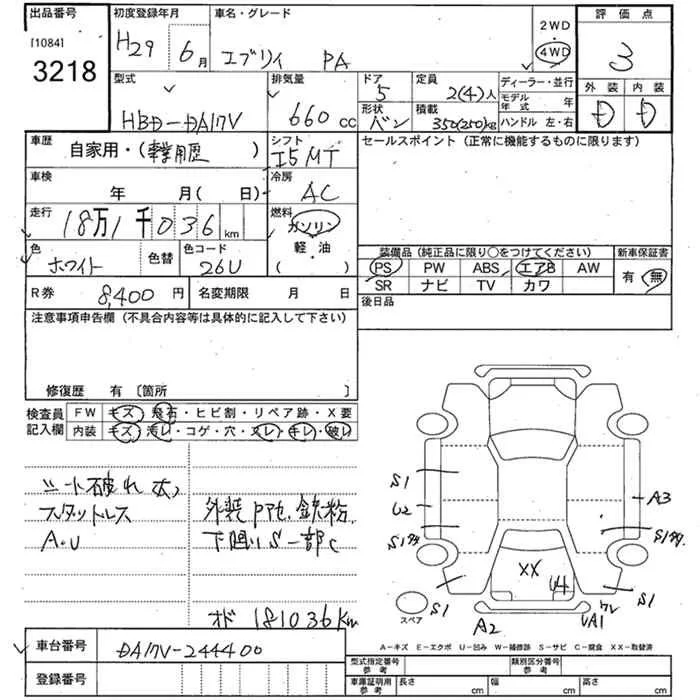 出品番号
[1084]
3218
初度登録年月
H29年 6月
車名・グレード
エブリイ PA
2WD
4WD
評価点
3
外装 内装
D D
型式
HBD-DA17V
排気量
660 cc
ドア
5
形状
バン
定員
2(4)人
積載
350(250)kg
ディーラー・並行
モデル年式 年
ハンドル 左・右
車歴
自家用・(事業用歴)
シフト
I5MT
車検
年 月( 日)
冷房
AC
走行
18万1千036km
燃料
ガソリン
軽・油
( )
色
ホワイト
色替
色コード
26U
R券 8,400円
名変期限 月 日
セールスポイント(正常に機能するものに限ります)
装備品(純正品に限り〇をつけてください)
新車保証書
PS PW ABS エアB AW
SR ナビ TV カワ
有・無
後日品
注意事項申告欄(不具合内容等は具体的に記入して下さい)
修復歴 有〔箇所 〕
検査員記入欄
FW キズ・飛石・ヒビ割・リペア跡・X要
内装 キズ・汚レ・コゲ・穴・スレ・キレ・破レ
シート破れ大
スタッドレス
A・U
外装 鉄粉
下廻りS一部C
オド 181036km
S1
U2
S1
S1
A3
S1
S1
XX
U4
A2
UA1
スペア
A-キズ E-エクボ U-凹み W-補修跡 S-サビ C-腐食 XX-取替済
車台番号 DA17V-244400
登録番号
型式指定番号 参考
類別区分番号 参考
車庫証明用 参考
長さ cm 幅 cm 高さ cm